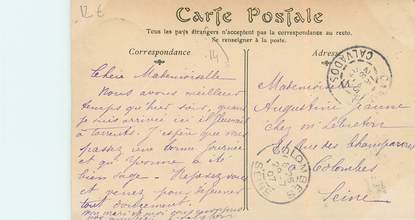 12 €
Carte Postale
Tous les pays étrangers n'acceptent pas la correspondance au recto.
Se renseigner à la poste.
Correspondance
Adresse
CALVADOS
Chère Mademoiselle
Nous avons meilleur
temps qu'hier soir, quand
je suis arrivée ici il pleuvait
à torrents. J'espère que vous
passez une bonne journée
et qu'Yvonne a été
bien sage. Reposez vous
et venez pour
tout doucement.
mon mari et moi vous
Mademoiselle
Augustine Jeanne
chez Mr Lebreton
rue des Champarons
Colombes
Seine
COLOMBES